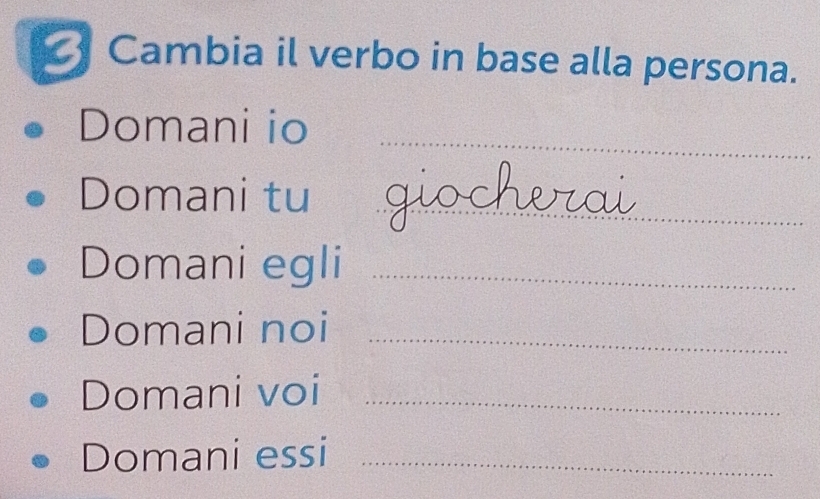 3 Cambia il verbo in base alla persona.
• Domani io ....................
• Domani tu giocherai
• Domani egli ....................
• Domani noi ....................
• Domani voi ....................
• Domani essi ....................